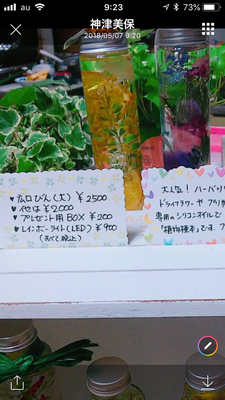 au
9:23
73%
神津美保
2018/05/07 9:20
♥ 広口びん(大) ¥2500
♥ 他は¥2000
♥ プレゼント用BOX ¥200
♥ レインボーライト(LED) ¥900
(すべて税込)
大人気！ハーバリウ
ドライフラワー や プリザ
専用のシリコンオイルで
「植物標本」です。